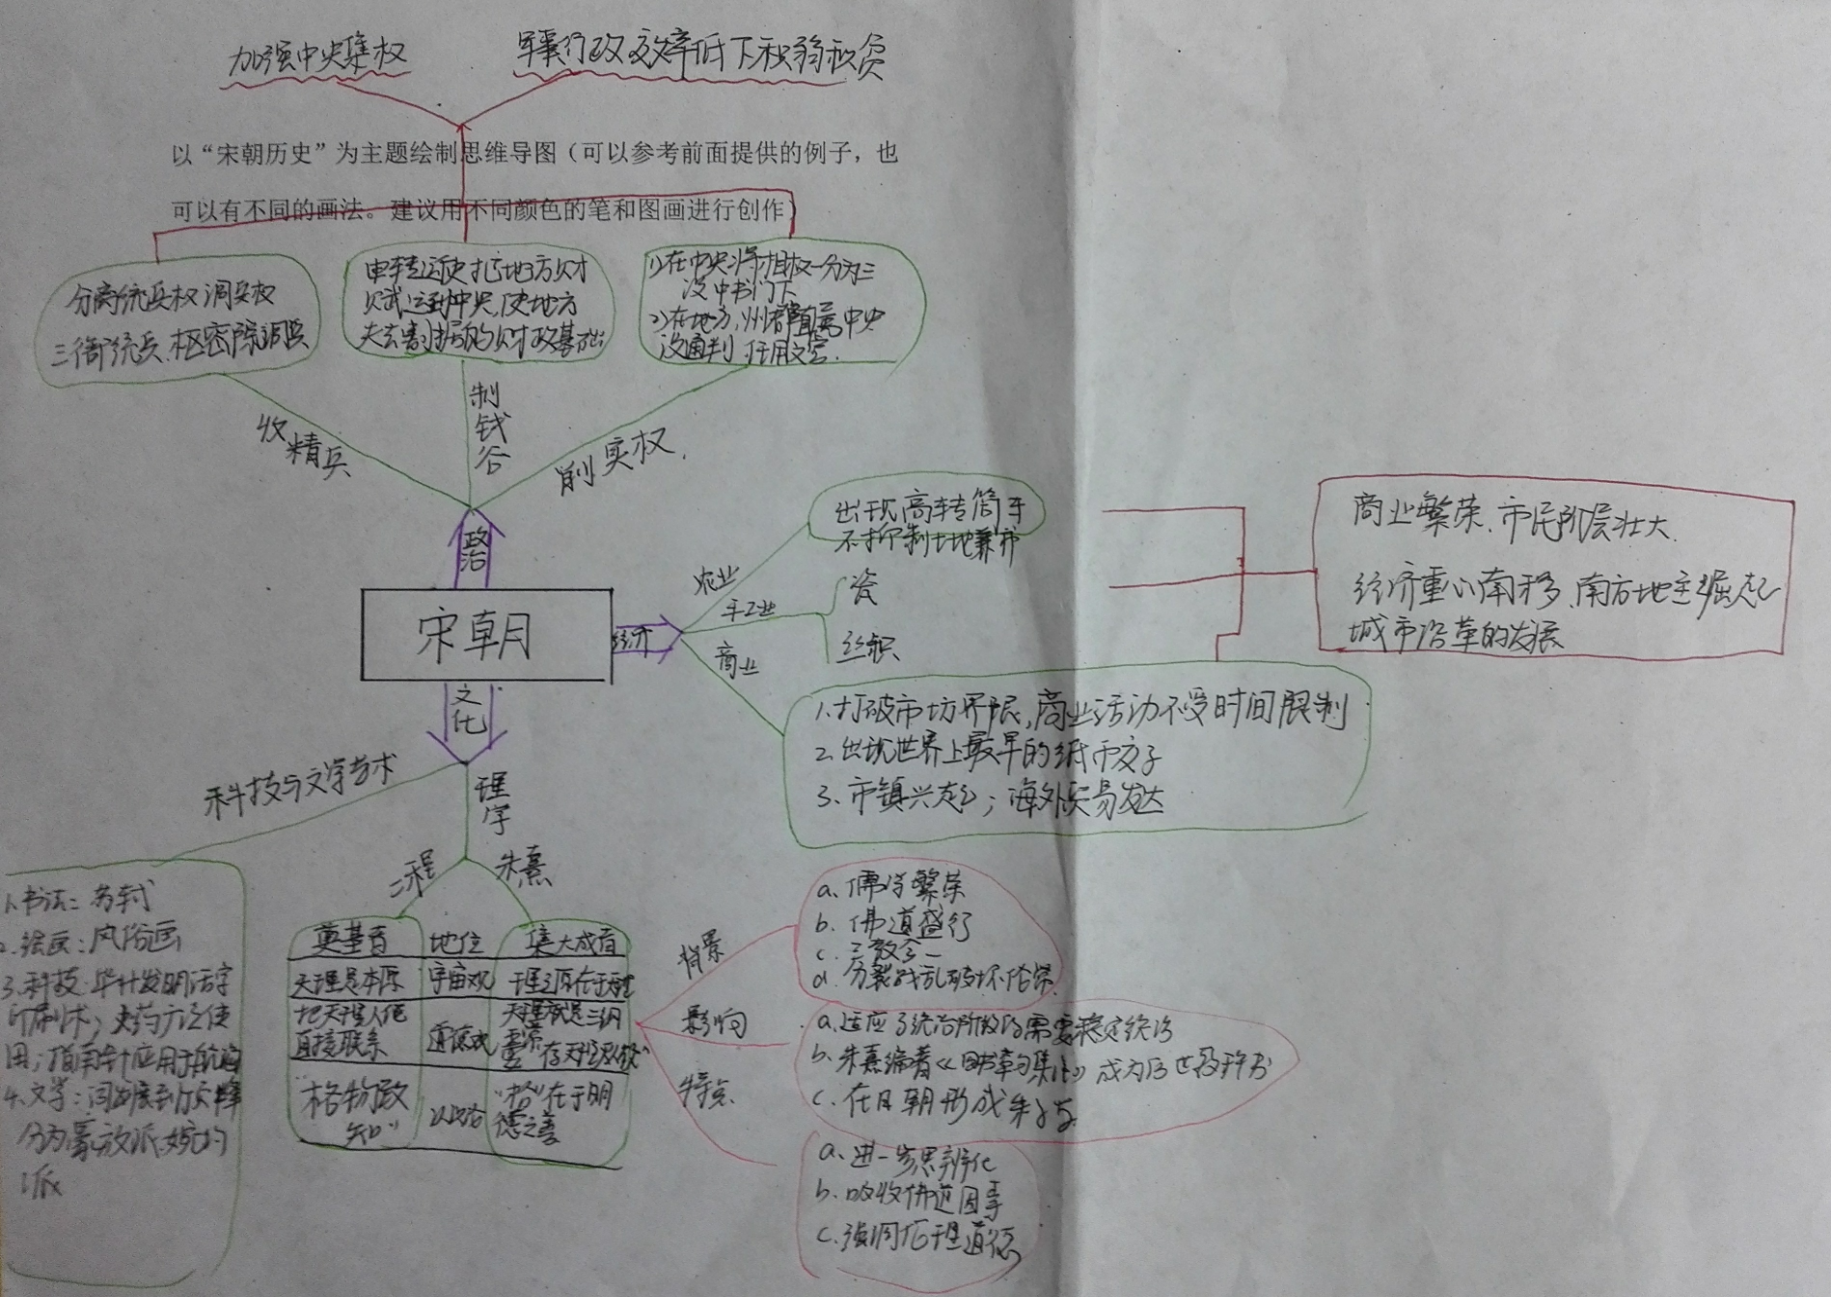 加强中央集权
军事行政效率低下积弱积贫
以“宋朝历史”为主题绘制思维导图（可以参考前面提供的例子，也
可以有不同的画法。建议用不同颜色的笔和图画进行创作）
分离统兵权调兵权
三衙统兵、枢密院调兵
由转运使把地方财
赋运到中央,使地方
失去割据的财政基础
1)在中央将相权一分为三
设中书门下
2)在地方,州郡直属中央
设通判 任用文官.
收精兵
制钱谷
削实权.
政治
宋朝
经济
文化
农业
出现高转筒车
不抑制土地兼并
手工业
瓷
丝织
商业
1.打破市坊界限,商业活动不受时间限制
2.出现世界上最早的纸币交子
3.市镇兴起;海外贸易发达
商业繁荣、市民阶层壮大.
经济重心南移、南方地主崛起
城市沿革的发展
科技与文学艺术
1.书法:苏轼
2.绘画:风俗画
3.科技:毕升发明活字
印刷术;火药广泛使
用;指南针应用于航海
4.文学:词发展到顶峰
分为豪放派、婉约
派
理学
二程
朱熹
奠基者 地位 集大成者
天理是本原 宇宙观
把天理人伦 道德观 天理就是三纲
直接联系 五常
“格物致 认识论 “格”在于明
知” 德之善
背景
a.儒学繁荣
b.佛道盛行
c.三教合一
d.分裂战乱破坏伦常
影响
a.适应了统治阶级的需要稳定统治
b.朱熹编著《四书章句集注》成为后世教科书
c.在日朝形成朱子学
特点
a.进一步思辨化
b.吸收佛道因素
c.强调伦理道德